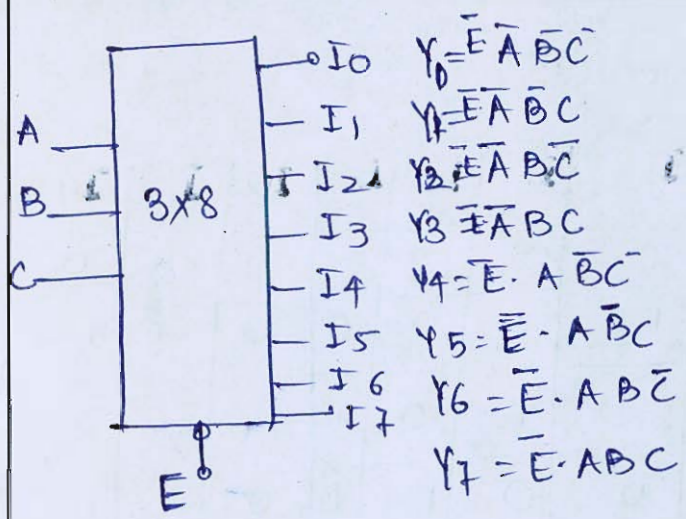 I0 Y0 = E̅ A̅ B̅ C̅
A I1 Y1 = E̅ A̅ B̅ C
B 3x8 I2 Y2 = E̅ A̅ B C̅
I3 Y3 = E̅ A̅ B C
C I4 Y4 = E̅ . A B̅ C̅
I5 Y5 = E̅ . A B̅ C
I6 Y6 = E̅ . A B C̅
I7 Y7 = E̅ . A B C
E